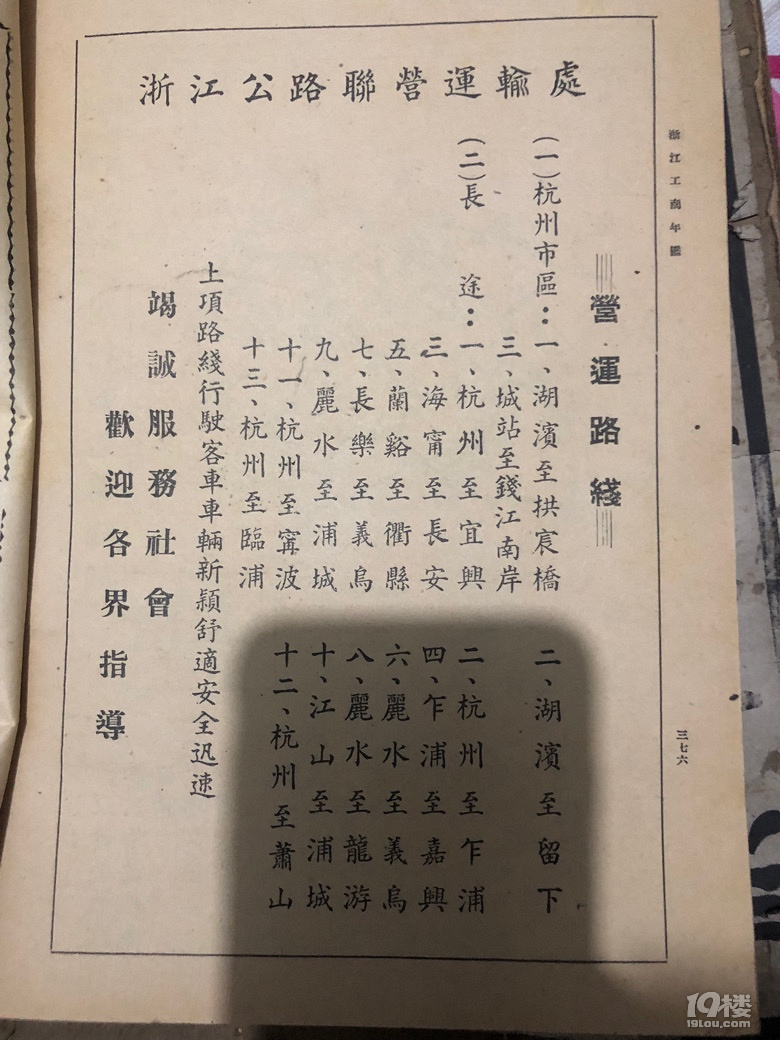 浙江公路聯營運輸處
浙江工商年鑑
三七六
營運路綫
(一)杭州市區:一、湖濱至拱宸橋 二、湖濱至留下
三、城站至錢江南岸
(二)長 途:一、杭州至宜興 二、杭州至乍浦
三、海甯至長安 四、乍浦至嘉興
五、蘭谿至衢縣 六、麗水至義烏
七、長樂至義烏 八、麗水至龍游
九、麗水至浦城 十、江山至浦城
十一、杭州至甯波 十二、杭州至蕭山
十三、杭州至臨浦
上項路綫行駛客車車輛新穎舒適安全迅速
竭誠服務社會
歡迎各界指導
19楼
19lou.com